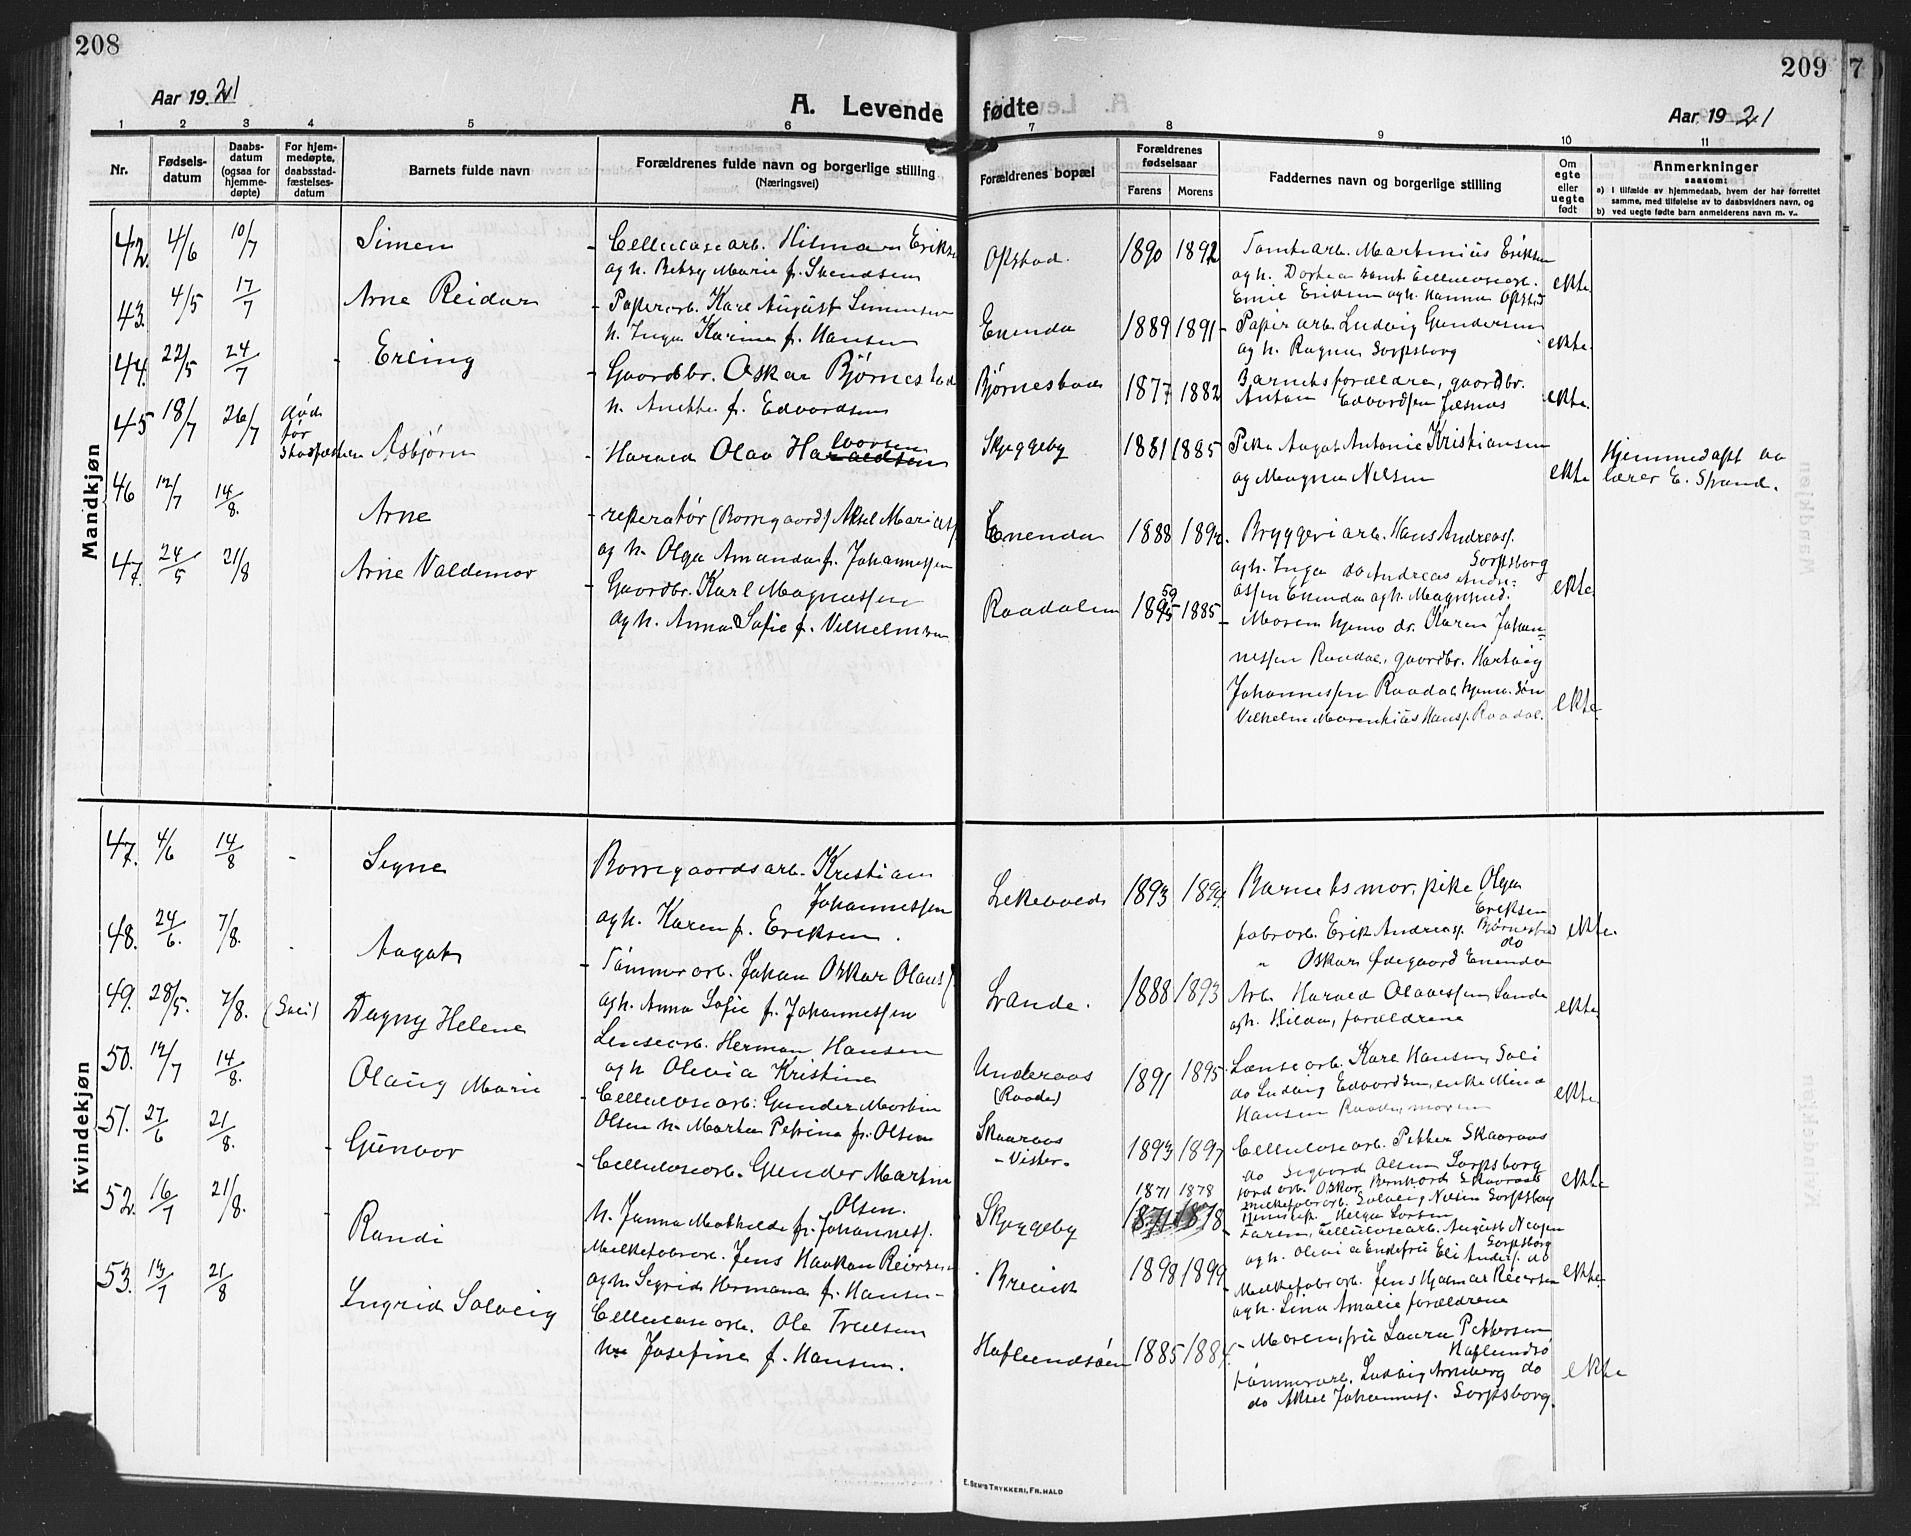 208
Aar 1921
A. Levende
1 2 3 4 5 6
Nr.
Fødsels-
datum
Daabs-
datum
(ogsaa for
hjemme-
døpte)
For hjem-
medøpte,
daabsstad-
fæstelses-
datum
Barnets fulde navn
Forældrenes fulde navn og borgerlige stilling
(Næringsvei)
Mandkjøn
42. 4/6 10/7 Simen - Cellulosearb. Hilmar Eriks
og h. Betsy Marie f. Svendsen
43. 4/5 17/7 Arne Reidar - Papirarb. Karl August Simensen
h. Inga Karina f. Hansen
44. 22/5 24/7 - Erling - Gaardbr. Oskar Bjørnestad
h. Anethe f. Edvardsen
45 18/7 26/7 død
før
Asbjørn - Harald Olav Halvorsen
46 12/7 14/8. Arne - reperatør (Borregaard) Aksel Mariass
og h. Olga Amanda f. Johannessen
47. 24/5 21/8 Arne Valdemar - Gaardbr. Karl Magnussen
og h. Anna Sofie f. Vilhelmsen
Kvindekjøn
47. 4/6 14/8 - Signe Borregaardsarb. Kristian
Johannessen
og h. Karen f. Eriksen.
48. 24/6. 7/8. - Aagot - Tømmerarb. Johan Oskar Olauss
og h. Anna Sofie f. Johannessen
49. 28/5. 7/8. (Soli) Dagny Helene Lensearb. Herman Hansen
og h Olivia Kristine
50. 14/8. Olaug Marie Cellulosearb. Gunder Martin
Olsen h. Marta Petrina f. Olsen
51. 27/6 21/8. - Gunvor - Cellulosearb. Gunder Martin
Olsen.
52. 16/7 21/8. - Randi h. Janna Mathilde f. Johanness.
Melkefabrarb. Jens Haakon Reiersen
53. 13/7 21/8 Ingrid Solveig og h. Sigrid Hermana f. Hansen
Cellulosearb. Ole Truelsen
Josefine f. Hansen.
209
7
Aar 1921
fødte
7 8 9 10 11
Forældrenes bopæl
Forældrenes
fødselsaar
Farens Morens
Faddernes navn og borgerlige stilling
Om
egte
eller
uegte
født
Anmerkninger
saasom:
a) I tilfælde av hjemmedaab, hvem der har forrettet
samme, med tilføielse av to daabsvidners navn, og
b) ved uegte fødte barn anmelderens navn m. v..
Opstad. 1890 1892 Tomtearb. Martinius Eriksen
og h. Dorthea samt Cellulosearb.
Emil Eriksen og h. Hanna Opstad ekte.
Enenda 1889 1891 - Papirarb. Ludvig Gundersen
og h. Ragna Sorpsborg ekte.
Bjørnestad 1877 1882 Barnets forældre, gaardbr.
Anton Edvardsen Jelsnes ekte.
Skjeggeby 1881 1885 Pike Aagot Antonie Kristiansen
og Magna Nilsen ekte
Hjemmedøpt av
lærer E. Strand.
Enenda 1888 Bryggeriarb. Hans Andreass.
Sorpsborg
og h. Inga do Andreas Andre-
assen Enenda og h. Magnhild. ekte
Raadalen 1885 - Moren hjemv. dr. Karen Johan-
nessen Raadal, gaardbr. Hartvig
Johannessen Raadal hjemv. søn
Vilhelm Marenkius Hanss. Raadal. ekte
Lekevold 1893 1894. Barnets mor, pike Olga
Eriksen
fabrarb. Erik Andreass. Bjørnestad ekte.
do
" Oskar Ødegaard Enenda
Lande. 1888 1893 Arb. Harald Olavessen, Lande
og h. Hilda, forældrene ekte
Underaas 1891 1895 Lensearb. Karl Hansen, Soli
(Raade) do Ludvig Edvardsen, enke Mina
Hansen Raade, moren ekte
Skaaraas
- Vister. 1893 1897 Cellulosearb. Petter Skaaraas
do Sigvard Olsen Sorpsborg
jordarb. Oskar Bernhard Skaaraas ekte
1871 1878 melkefabrarb. Solveig Nilsen Sorpsborg
Helga Larsen
Skjeggeby 1871 1878 - Faren, Cellulosearb. August Nilsen
Sorpsborg
og h. Olivia Enkefru Eli Anders. do
Breivik 1898 1899 - Melkefabrarb. Jens Hjalmar Reiersen
og h. Lina Amalie forældrene ekte
Haflundsøen 1885 1884 - Moren, fru Laura Pettersen
Haflundsø
tømmerarb. Ludvig Arneberg do
do Aksel Johanness. Sorpsborg. ekte
E. SEM'S TRYKKERI, FR.HALD